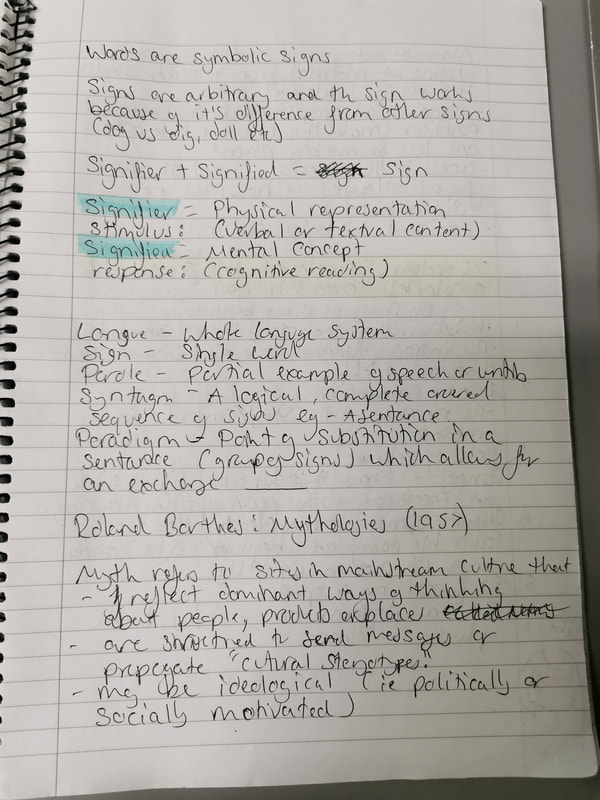 Words are symbolic signs
Signs are arbitrary and th sign works
because of it's difference from other signs
(dog vs dig, doll etc)
Signifier + Signified = Sign
Signifier = Physical representation
stimulus: (verbal or textual content)
Signified = Mental Concept
response: (cognitive reading)
Langue - Whole language system
Sign - Single word
Parole - Partial example of speech or
Syntagm - A logical, complete ordered
sequence of signs eg - A sentance
Paradigm - Point of Substitution in a
Sentance (group of signs) which allows for
an exchange
Roland Barthes: Mythologies (1957)
Myth refers to sites in mainstream culture that
- reflect dominant ways of thinking
about people, products or place
- are structured to send messages or
propegate "cultural stereotypes."
- may be ideological (ie politically or
socially motivated)